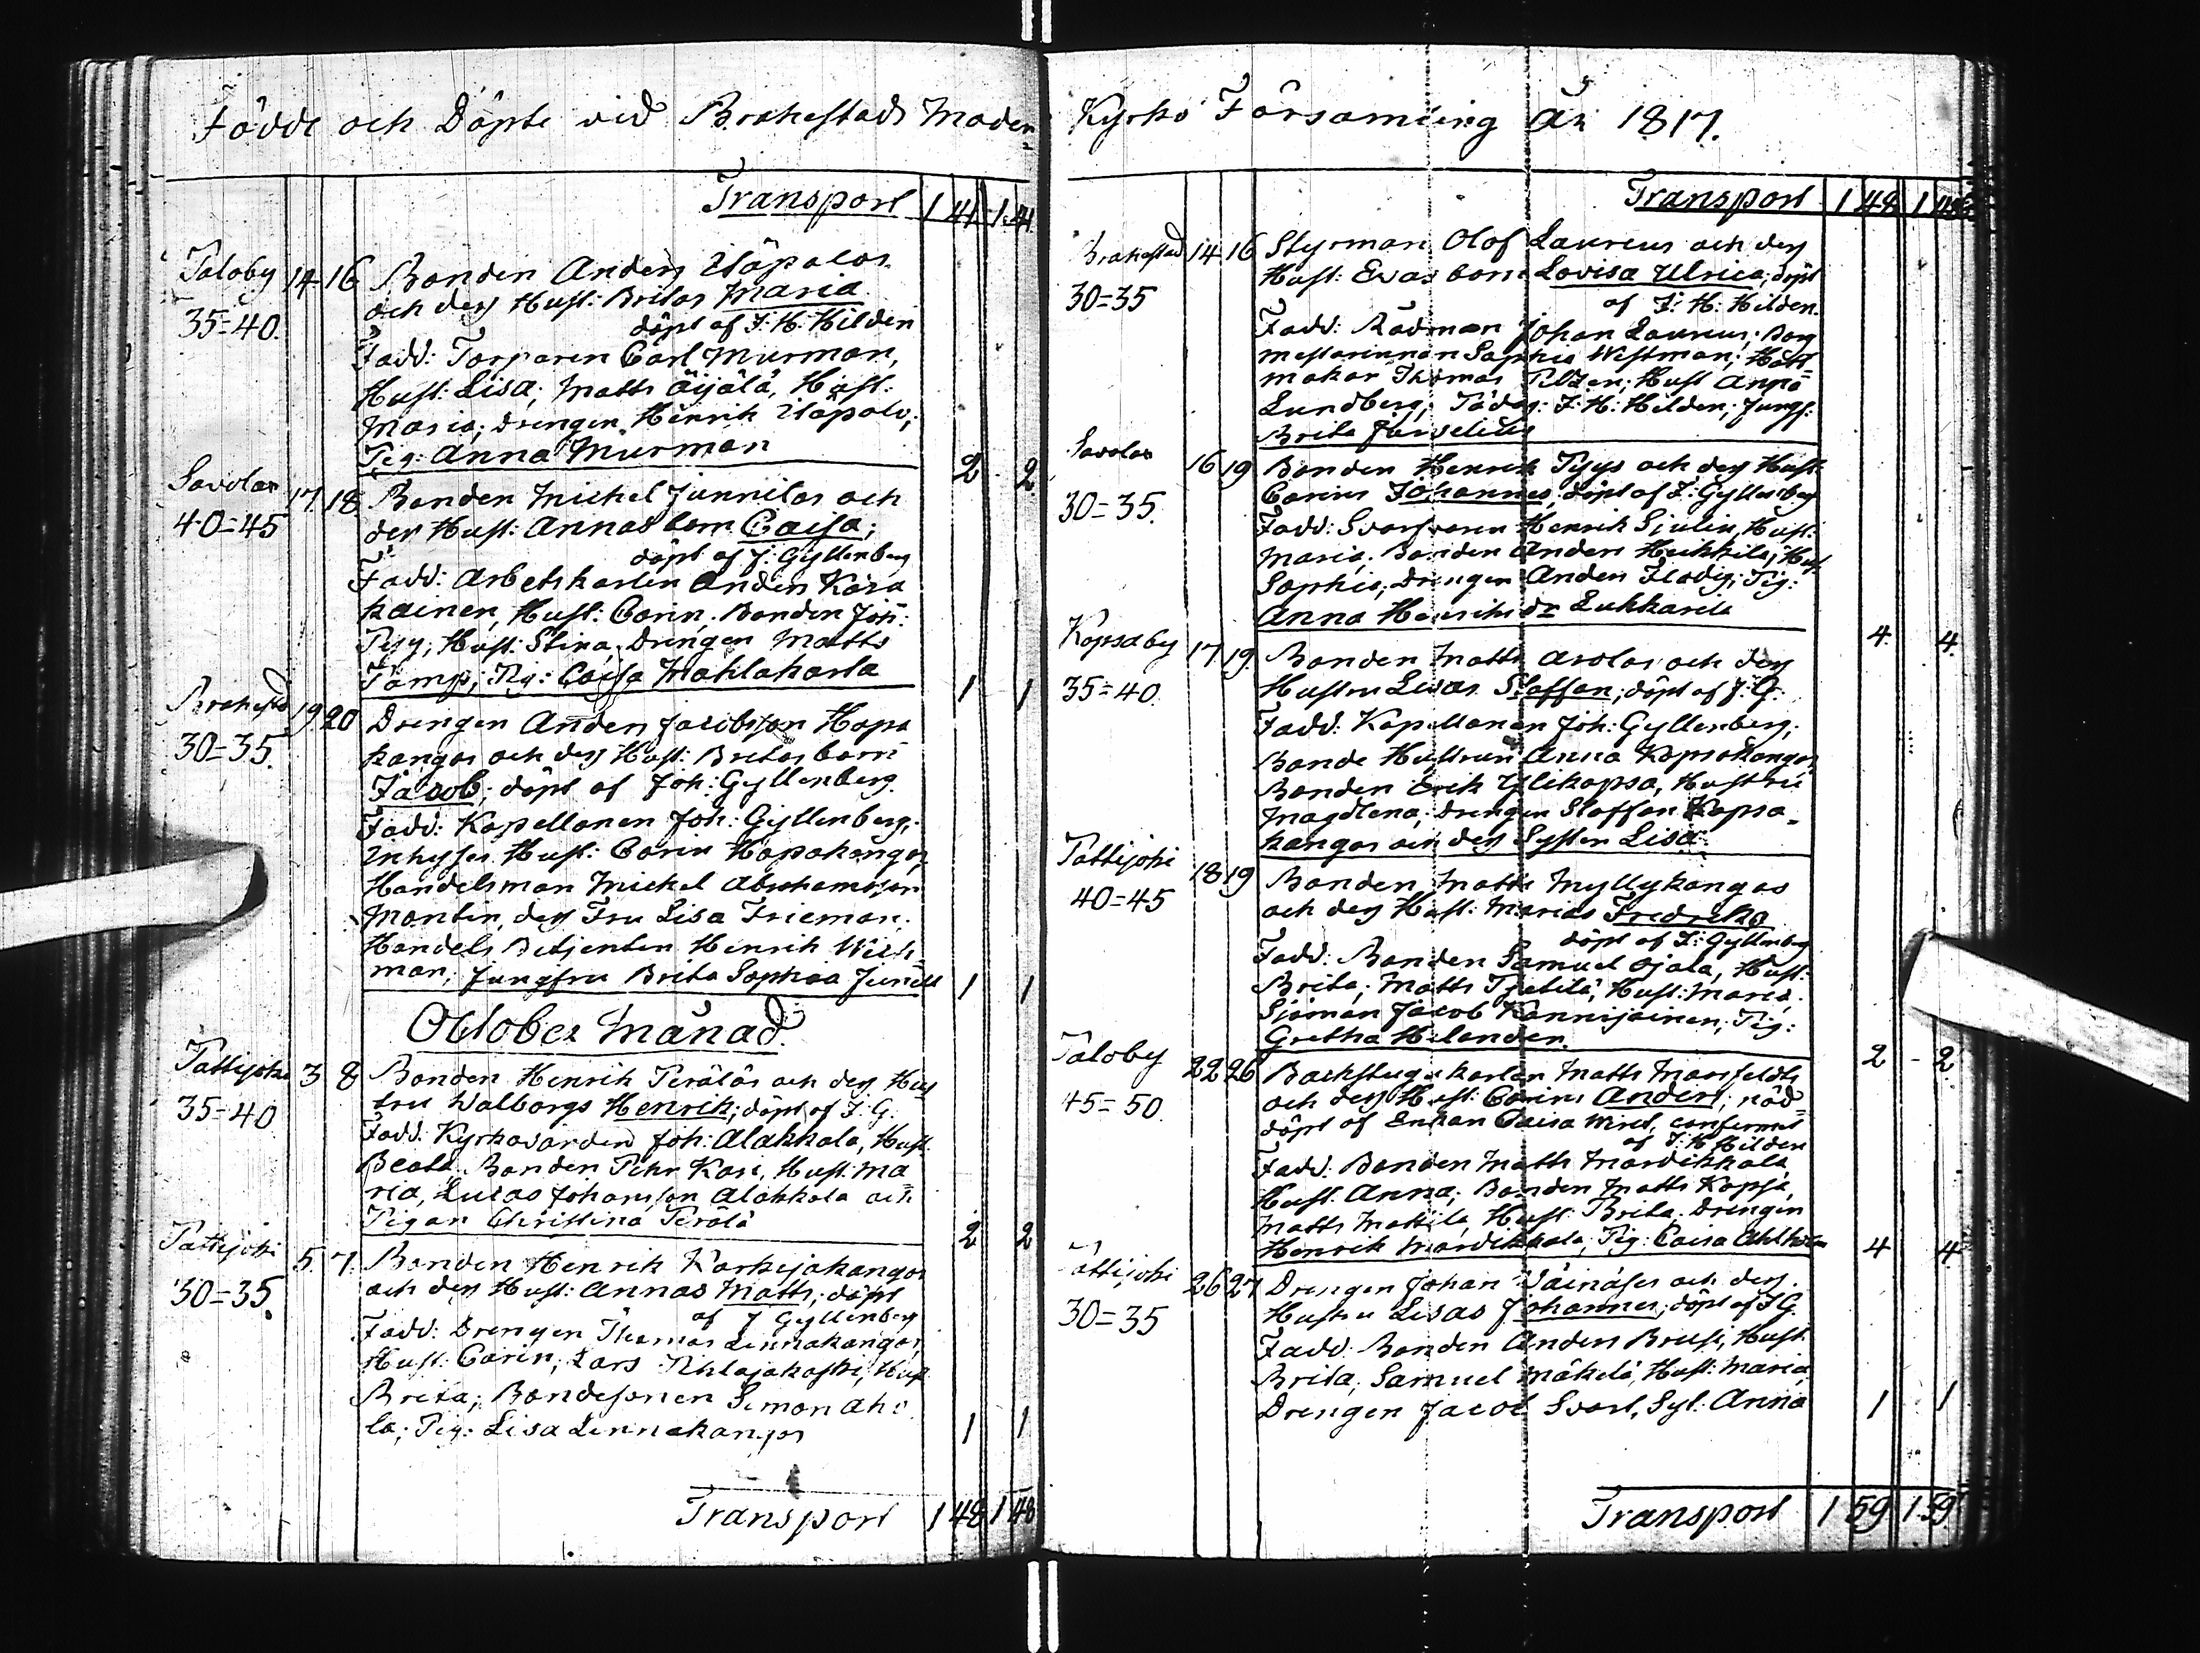 Födde och Döpte vid Brahestads Moder=
Transport 1 41 1 41
Paloby 14 16 Bonden Anders Ylöpalos
35=40. och dess Hust: Britas Maria
döpt af J: H: Hilden
Fadd: Torparen Carl Murman,
Hust: Lisa; Matts Äijälä, Hust:
Maria; Drengen Henrik Ylöpalo;
Pig: Anna Murman 2 2
Savolax 17 18 Bonden Michel Junnilas och
40=45 dess Hust: Annas barn Caisa;
döpt af J: Gyllenberg
Fadd: Arbetskarlen Anders
kainen, Hust: Carin; Bonden Joh:
Pyy; Hust: Stina; Drengen Matts
Tamp; Pig: Caisa 1 1
Brahestad 19 20 Drengen Anders Jacobsson Hapa
30=35. kangas och dess Hust: Britas barn
Jacob; döpt af Joh: Gyllenberg.
Fadd: Kapellanen Joh: Gyllenberg;
Inhyses Hust: Carin Hapakangas,
Handelsman Michel Abrahamsson
Montin, dess Fru Lisa Frieman;
Handels Betjenten Henrik Wich
man; Jungfru Brita Sophia Junell 1 1
October Månad.
Pattijoki 3 8 Bonden Henrik Peräläs och dess Hus
35=40 tru Walborgs Henrik; döpt af J. G.
Fadd: Kyrkovärden Joh: Alakkala, Hust:
Beata Bonden Pehr Kasi, Hust: Ma
ria, Lucas Johansson Alakkala och
Pigan Christina Perälä 2 2
Pattijoki 5 7 Bonden Henrik Karhejakangas
30=35. och dess Hust: Annas Matts; döpt
af J Gyllenberg
Fadd: Drengen Thomas Linnakangas,
Hust: Carin; Lars Pihlajakoski, Hust
Brita; Bondesonen Simon Aho
la; Pig: Lisa Linnakangas 1 1
Transport 1 48 1 48
Kyrko Församling År 1817.
Transport 1 48 1 48
Brahestad 14 16 Styrman Olof Laureus och dess
30=35 Hust: Evas barn Lovisa Ulrica; döpt
af J: H: Hilden.
Fadd: Rådman Johan Laureus; Borg
mästarinnan Sophia Westman; Hatt
makar Thomas Hust Anna
Lundberg; J: H: Hilden; Jungf:
Brita
Savolax 16 19 Bonden Henrik Pyys och dess Hust:
30=35. Carins Johannes; döpt af J: Gyllenberg
Fadd: Svarfvaren Henrik Sjulin, Hust:
Maria; Bonden Anders Heikkilä; Hust
Sophia; Drengen Anders Flodig; Pig:
Anna Henriksdr Lukkarila 4 4
Kopsaby 17 19 Bonden Matts Avolas och dess
35=40. Hustru Lisas Staffan; döpt af J: G:
Fadd: Kapellanen Joh: Gyllenberg;
Bonde Hustrun Anna Kopsakangas,
Bonden Erik Ylikopsa, Hustru
Magdlena; Drengen Staffan Kopsa=
kangas och dess Syster Lisa.
Pattijoki 18 19 Bonden Matts Myllykangas
40=45 och dess Hust: Marias Fredrika
döpt af J: Gyllenberg
Fadd: Bonden Samuel Ojala, Hust:
Brita; Matts Hust: Maria.
Sjöman Jacob Kannijainen; Pig:
Gretha Helander. 2 2
Paloby 22 26 Backstugukarlen Matts Marsfeldts
45=50. och dess Hust: Carins Anders; nöd=
döpt af Enkan Caisa confirmet
af J: H Hilden
Fadd. Bonden Matts Mardikkala
Hust: Anna; Bonden Matts Kopsa,
Matts Mattila, Hust: Brita. Drengen
Henrik Mardikkala, Pig: Caisa Ahlholm 4 4
Pattijoki 26 27 Drengen Johan Väinäses och dess
30=35 Hustru Lisas Johannes; döpt af J G.
Fadd. Bonden Anders Brusi, Hust:
Brita; Samuel Mäkelä, Hust: Maria,
Drengen Jacob Svart, Syt: Anna 1 1
Transport 1 59 1 59